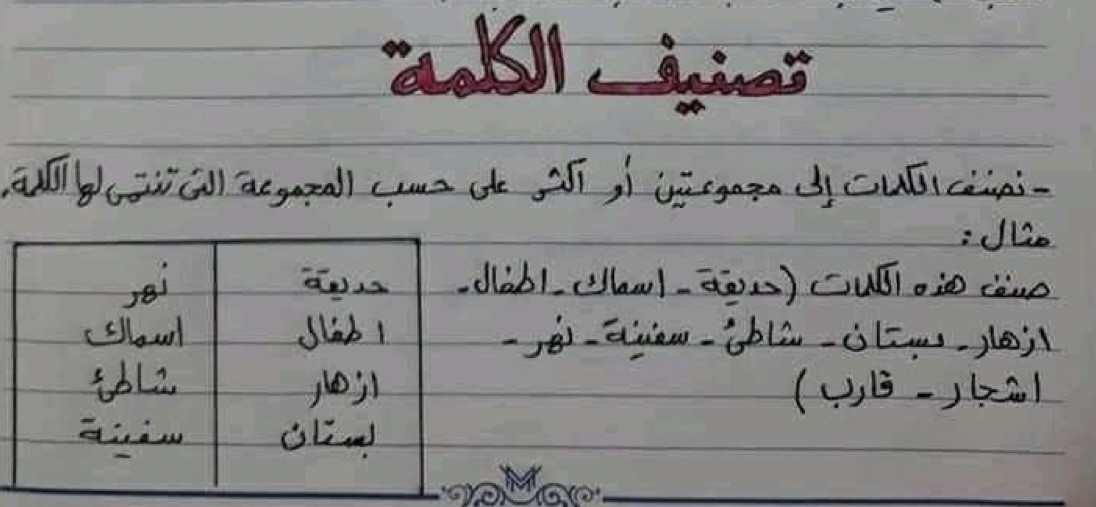 تصنيف الكلمة
- نصنف الكلمات إلى مجموعتين أو أكثر على حسب المجموعة التى تنتمى لها الكلمة.
مثال :
صنف هذه الكلمات (حديقة - اسماك - اطفال -
ازهار - بستان - شاطئ - سفينة - نهر -
اشجار - قارب )
حديقة نهر
اطفال اسماك
ازهار شاطئ
بستان سفينة